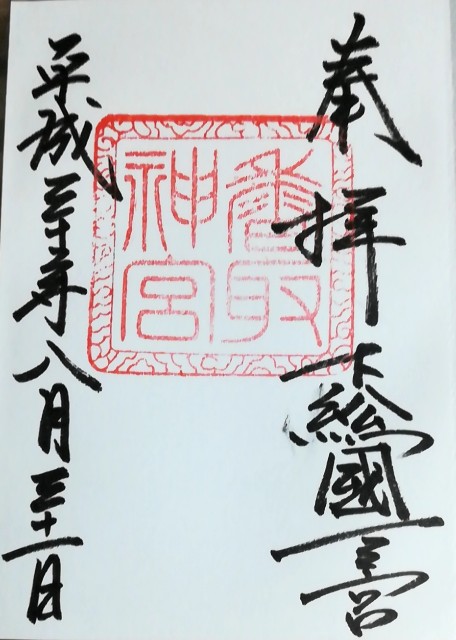 奉拝 下總國一之宮
香取
神宮
平成三十年八月三十一日